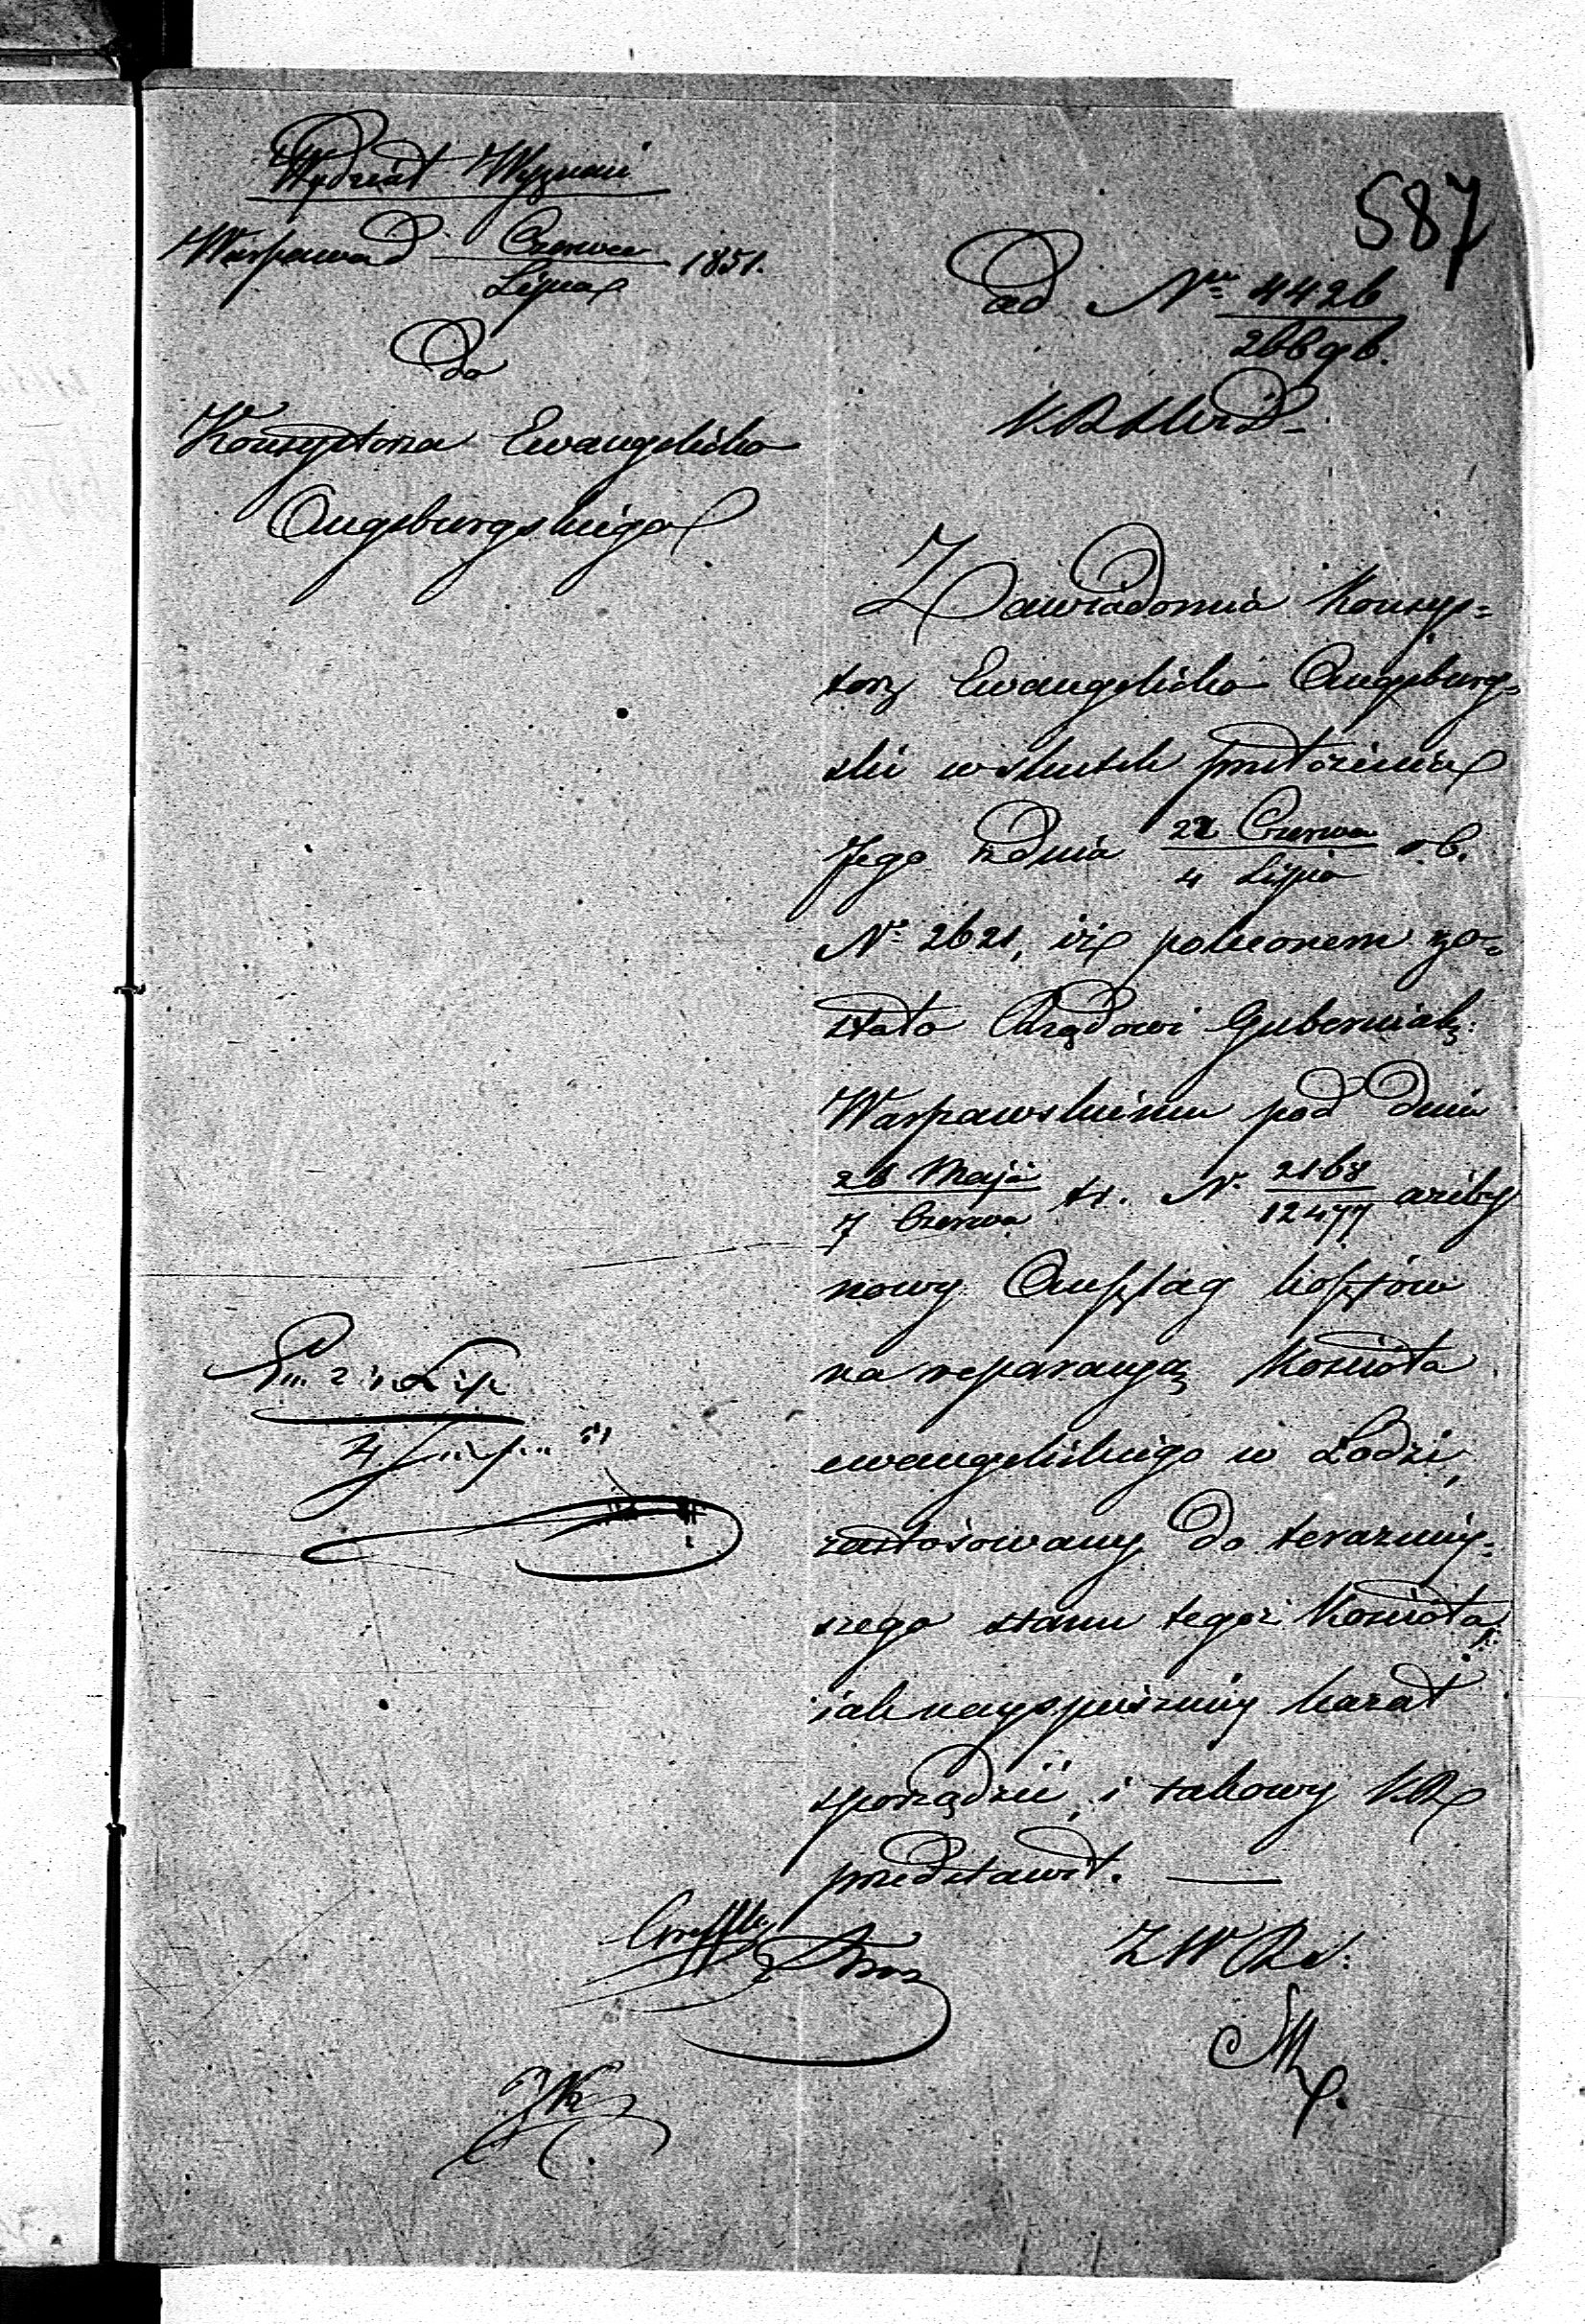 587
Wydział Wyznań
Warszawa d Czerwca / Lipca 1851.
Do
Konsystorza Ewangelicko
Augsburgskiego
ad Nru 4426 / 26696.
KRSWiD
Zawiadomia Konsys=
torz Ewangelicko Augsburg=
ski wskutek przełożenia
Jego z dnia 22 Czerwca / 4 Lipca r. b.
No 2621, iż poleconem zo=
stało Rządowi Gubernialn:
Warszawskiemu pod dniem
26 Maja / 7 Czerwca t.r. N. 2168 / 12477 ażeby
nowy Anszlag kosztów
na reparacyą Kościoła
ewangelickiego w Łodzi,
zastosowany do teraźniey=
szego stanu tegoż Kościoła,
iak nayspieszniey kazał
sporządzić, i takowy KR
przedstawił.
Z W Rz: